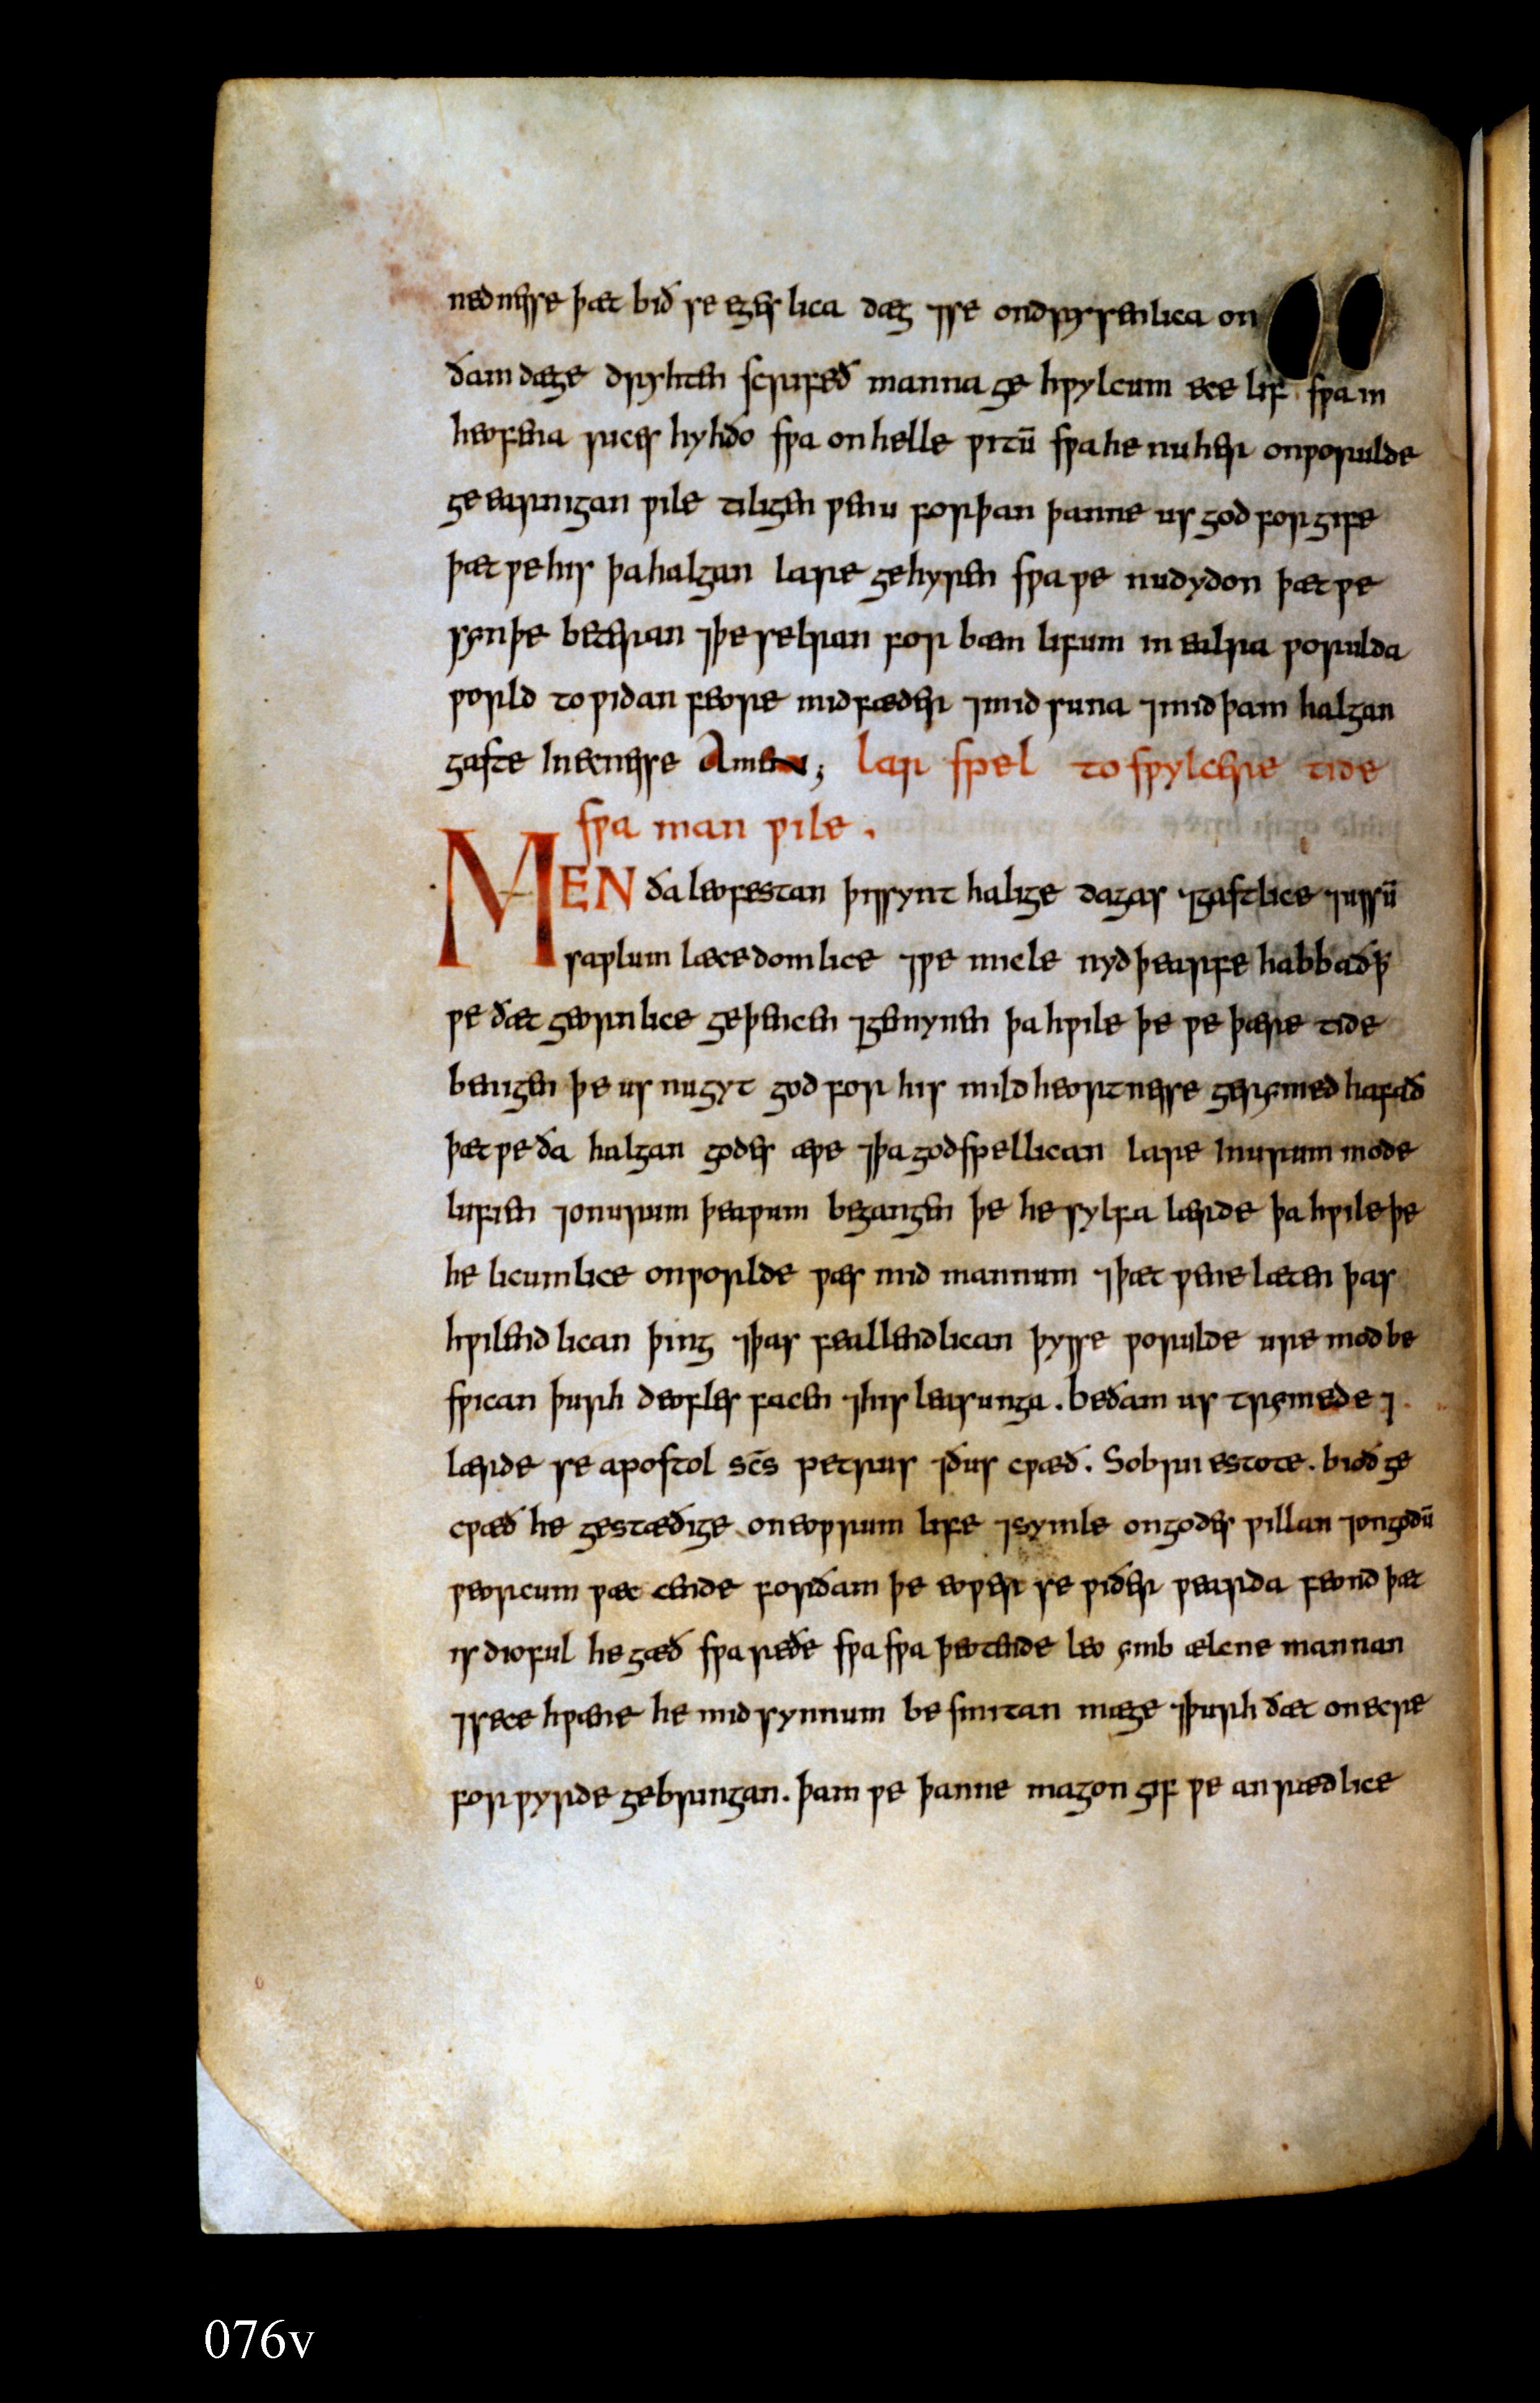 nednesse þæt bið se egeslica dæg ⁊se ondrysenlica on
ðam dæge dryhten scrifeð manna ge hƿylcum ece lif sƿa in
heofena rices hyhðo sƿa on helle ƿitū sƿa he nu her on ƿorulde
ge earnigan ƿile tiligen ƿe nu forþan þanne us god forgife
þæt ƿe his þa halgan lare gehyren sƿa ƿe nu dydon þæt ƿe
syn þe beteran ⁊þe selran for bæm lifum in ealra ƿorulda
ƿorld to ƿidan feore mid fæder ⁊mid suna ⁊mid þam halgan
gaste In ecnesse Amen; Lar spel to sƿylcere tide
sƿa man ƿile.
MEN ða leofestan þis synt halige dagas ⁊gastlice ⁊ussū
saƿlum læcedomlice ⁊ƿe micle nydþearfe habbað ꝥ
ƿe ðæt geornlice geþencen ⁊gemynen þa hƿile þe ƿe þære tide
bengen þe us nu gyt god for his mildheortnesse gerymed hafað
þæt ƿe ða halgan godes æƿe ⁊þa godspellican lare In urum mode
lufien ⁊on urum þeaƿum begangen þe he sylfa lærde þa hƿile þe
he licumlice on ƿorlde ƿæs mid mannum ⁊þæt ƿe ne læten þas
hƿilendlican þing ⁊þas feallendlican þysse ƿorulde ure mod be
sƿican þurh deofles facen ⁊his leasunga. be ðam us trymede ⁊
lærde se apostol sc̄s petrus ⁊ðus cƿæð. Sobrii estote. bioð ge
cƿæð he gestæðige on eoƿrum life ⁊symle on godes ƿillan ⁊on godū
ƿeorcum ƿæccende forðam þe eoƿer se ƿiðer ƿearda feond þæt
is dioful he gæð sƿa reðe sƿa sƿa þeotende leo ymb ælcne mannan
⁊sece hƿæne he mid synnum be smitan mæge ⁊þurh ðæt on ecre
for ƿyrde gebringan. þam ƿe þanne magon gif ƿe an rædlice
076v